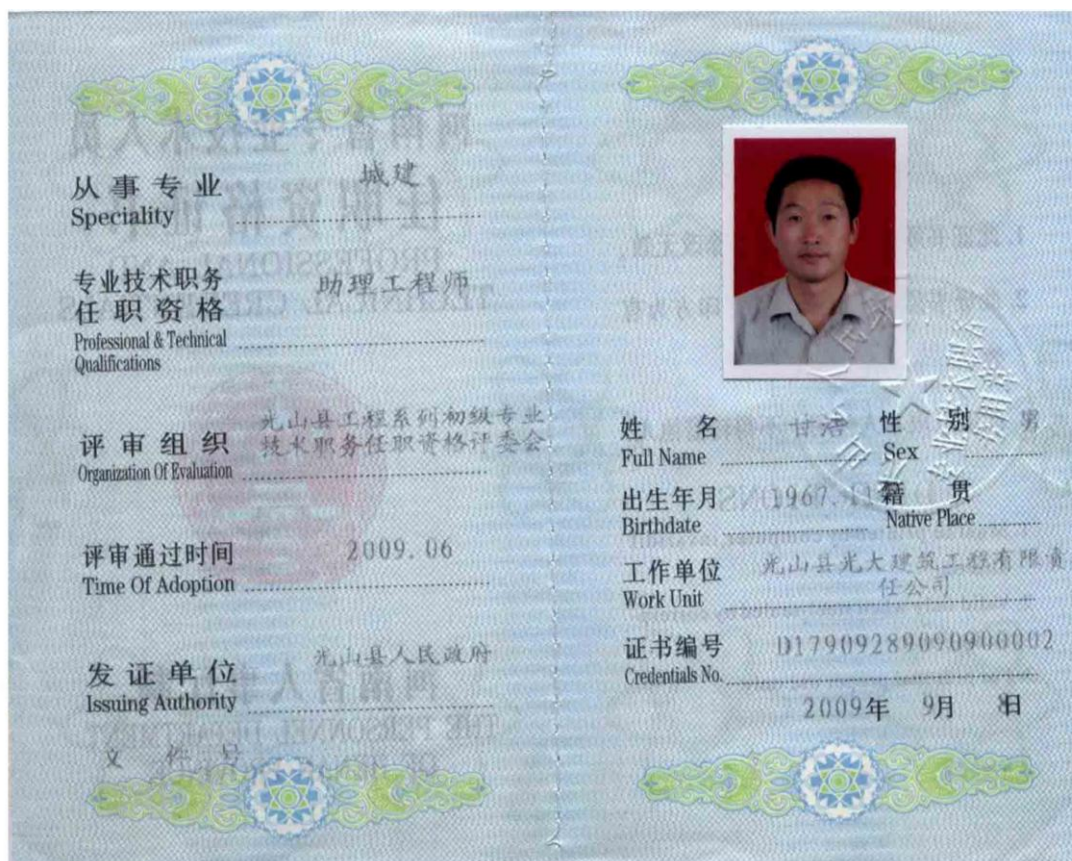 从事专业 城建
Speciality
专业技术职务 助理工程师
任职资格
Professional & Technical
Qualifications
光山县工程系列初级专业
评审组织 技术职务任职资格评委会
Organization Of Evaluation
评审通过时间 2009.06
Time Of Adoption
发证单位 光山县人民政府
Issuing Authority
文件号
姓名 甘 性别 男
Full Name Sex
出生年月 1967.11 籍贯
Birthdate Native Place
工作单位 光山县光大建筑工程有限责
任公司
Work Unit
证书编号 D17909289090900002
Credentials No.
2009年 9月 8日